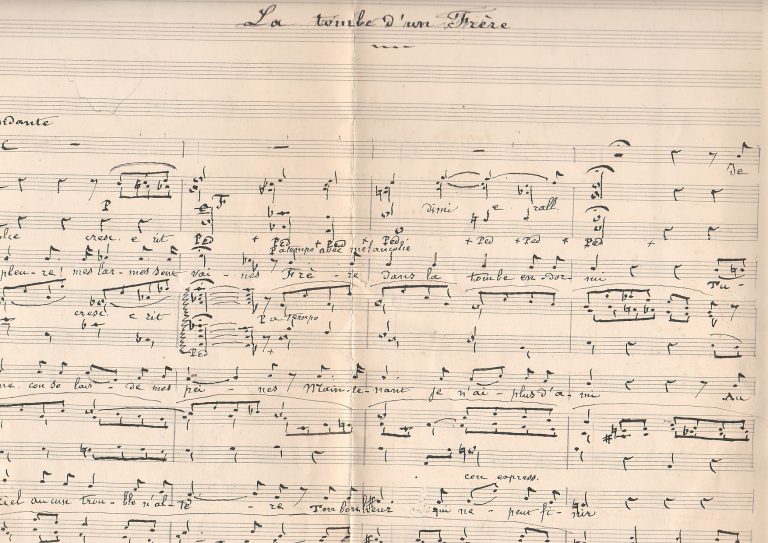 La tombe d'un Frère
ndante
Je
P F dimi e rall.
lce cresc. e rit Ped + Ped + Ped + Ped + Ped + Ped Ped +
a tempo avec mélancolie
pleu-re! mes lar-mes sont vai-nes Frè-re Dans la tombe en-dor-mi Tu-
cresc. e rit P a tempo
Ped +
me con so lais de mes pei-nes Main-te-nant je n'ai-plus d'a-mi Au
con express.
ciel aucun trou-ble n'al-tè-re Ton bonheur qui ne peut fi-nir